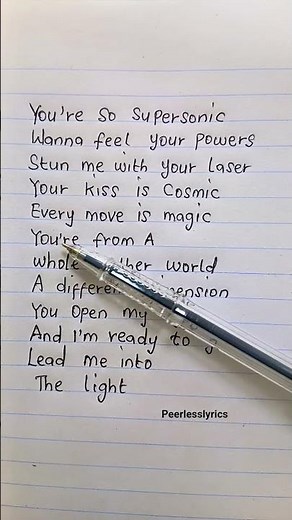 You're so supersonic
Wanna feel your powers
Stun me with your laser
Your kiss is Cosmic
Every move is magic
You're from A
whole other world
A different dimension
You Open my
And I'm ready to g
Lead me into
The light
Peerlesslyrics